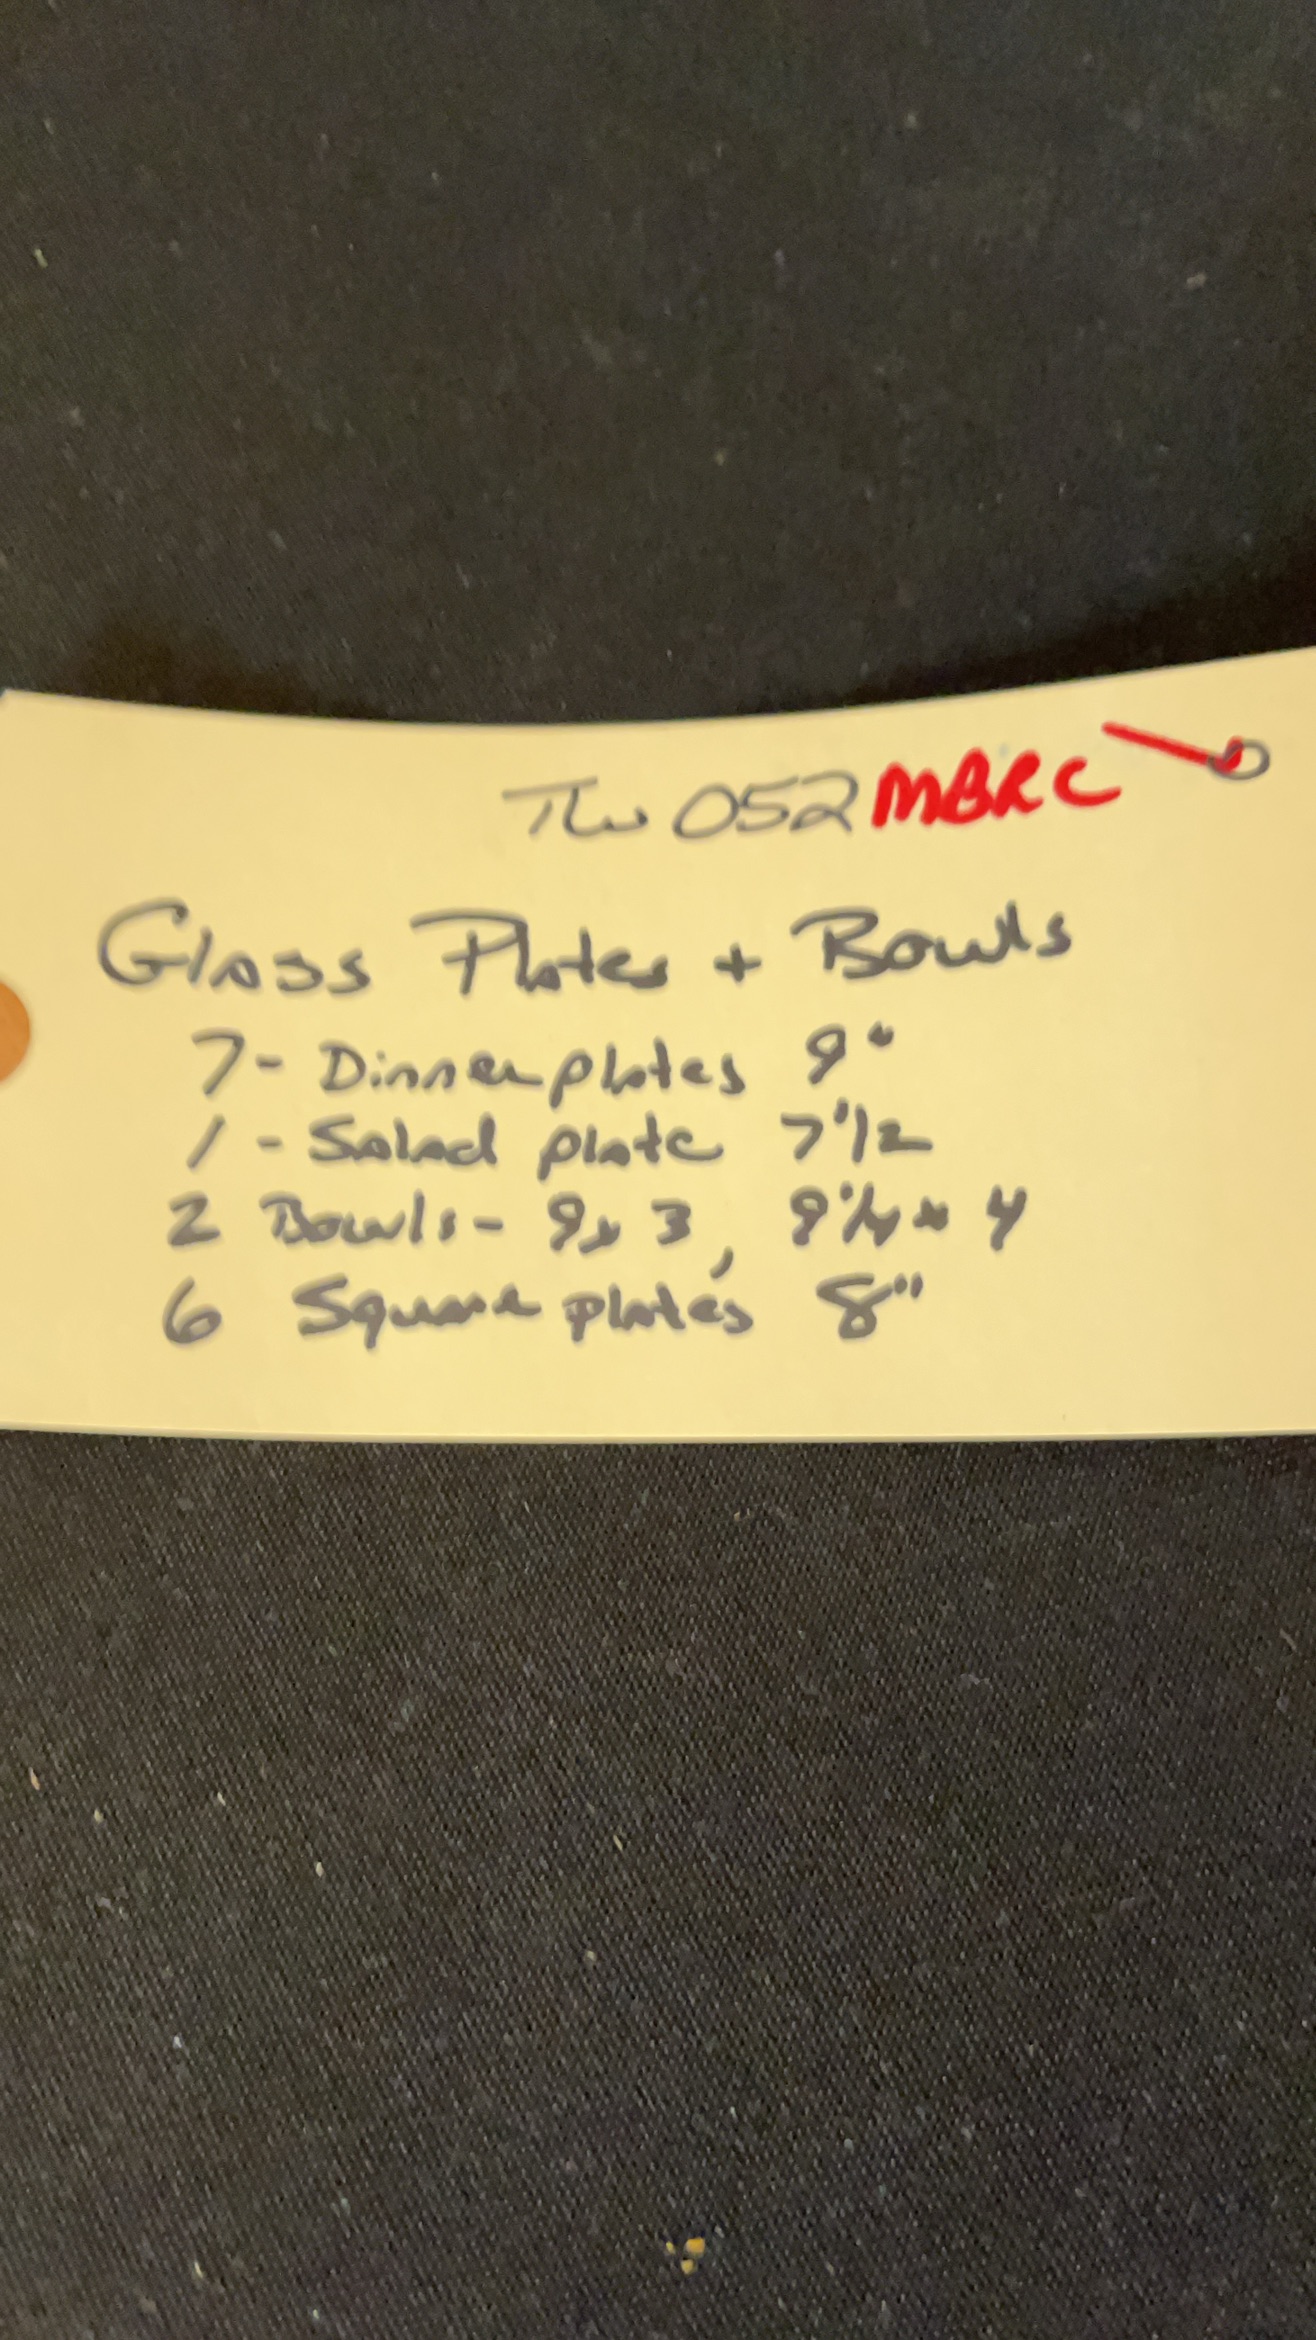 Tw 052 MBRC
Glass Plates + Bowls
7 - Dinner plates 9"
1 - Salad plate 7 1/2
2 Bowls - 9 x 3, 9 1/4 x 4
6 Square plates 8"